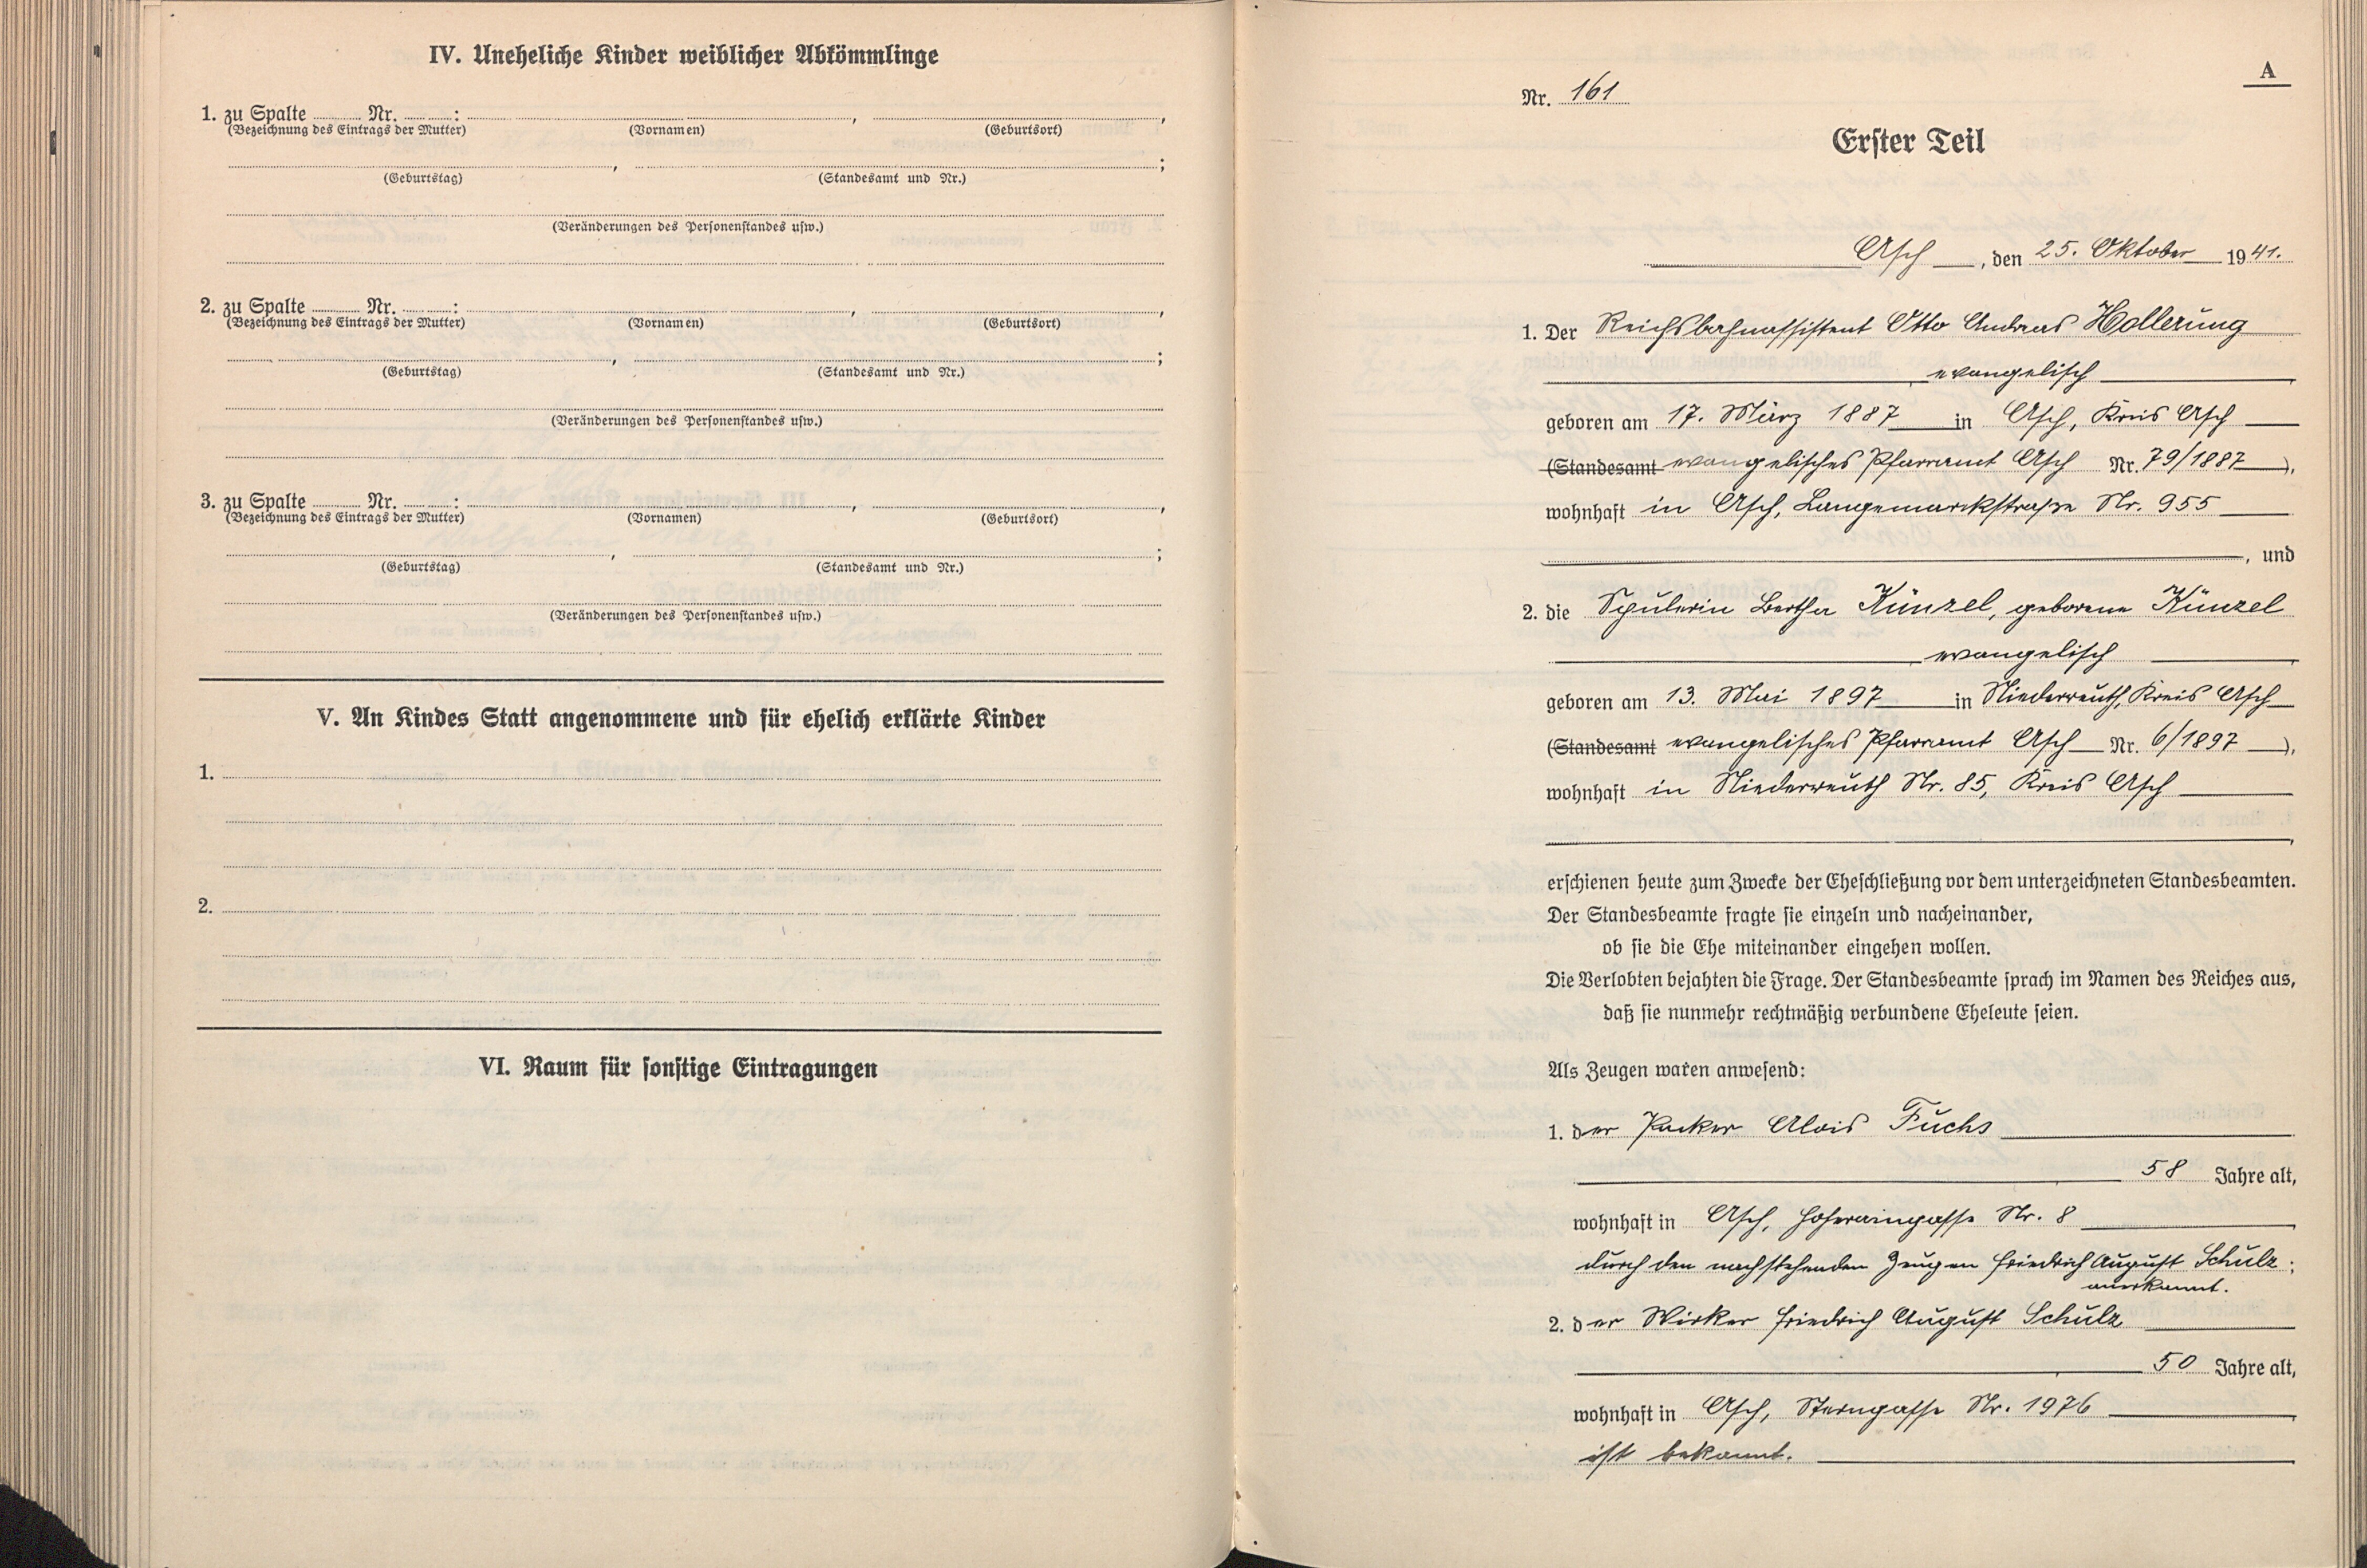 IV. Uneheliche Kinder weiblicher Abkömmlinge
1. zu Spalte ........ Nr. ........ : ........, ........,
(Bezeichnung des Eintrags der Mutter) (Vornamen) (Geburtsort)
........, ........;
(Geburtstag) (Standesamt und Nr.)
(Veränderungen des Personenstandes usw.)
2. zu Spalte ........ Nr. ........ : ........, ........,
(Bezeichnung des Eintrags der Mutter) (Vornamen) (Geburtsort)
........, ........;
(Geburtstag) (Standesamt und Nr.)
(Veränderungen des Personenstandes usw.)
3. zu Spalte ........ Nr. ........ : ........, ........,
(Bezeichnung des Eintrags der Mutter) (Vornamen) (Geburtsort)
........, ........;
(Geburtstag) (Standesamt und Nr.)
(Veränderungen des Personenstandes usw.)
V. An Kindes Statt angenommene und für ehelich erklärte Kinder
1.
2.
VI. Raum für sonstige Eintragungen
A
Nr. 161
Erster Teil
Asch, den 25. Oktober 1941.
1. Der Reichsbahnassistent Otto Andreas Hollerung
evangelisch,
geboren am 17. März 1887 in Asch, Kreis Asch
(Standesamt evangelisches Pfarramt Asch Nr. 79/1887),
wohnhaft in Asch, Langemarckstraße Nr. 955
, und
2. die Spulerin Bertha Künzel, geborene Künzel
evangelisch,
geboren am 13. Mai 1897 in Niederreuth, Kreis Asch
(Standesamt evangelisches Pfarramt Asch Nr. 6/1897),
wohnhaft in Niederreuth Nr. 85, Kreis Asch
,
erschienen heute zum Zwecke der Eheschließung vor dem unterzeichneten Standesbeamten.
Der Standesbeamte fragte sie einzeln und nacheinander,
ob sie die Ehe miteinander eingehen wollen.
Die Verlobten bejahten die Frage. Der Standesbeamte sprach im Namen des Reiches aus,
daß sie nunmehr rechtmäßig verbundene Eheleute seien.
Als Zeugen waren anwesend:
1. der Packer Alois Fuchs
58 Jahre alt,
wohnhaft in Asch, Hoheraingasse Nr. 8
durch den nachstehenden Zeugen Friedrich August Schulz;
anerkannt.
2. der Wirker Friedrich August Schulz
50 Jahre alt,
wohnhaft in Asch, Sterngasse Nr. 1976
ist bekannt.